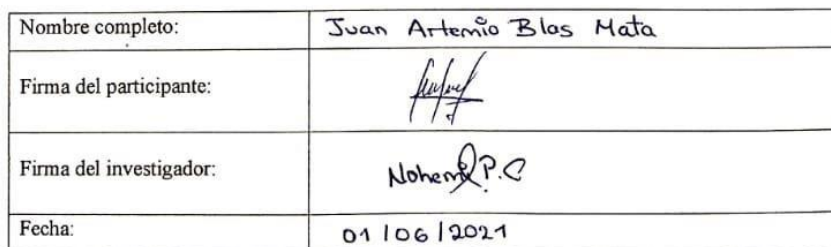 Nombre completo: Juan Artemio Blas Mata
Firma del participante:
Firma del investigador: Nohemi P.C
Fecha: 01/06/2021